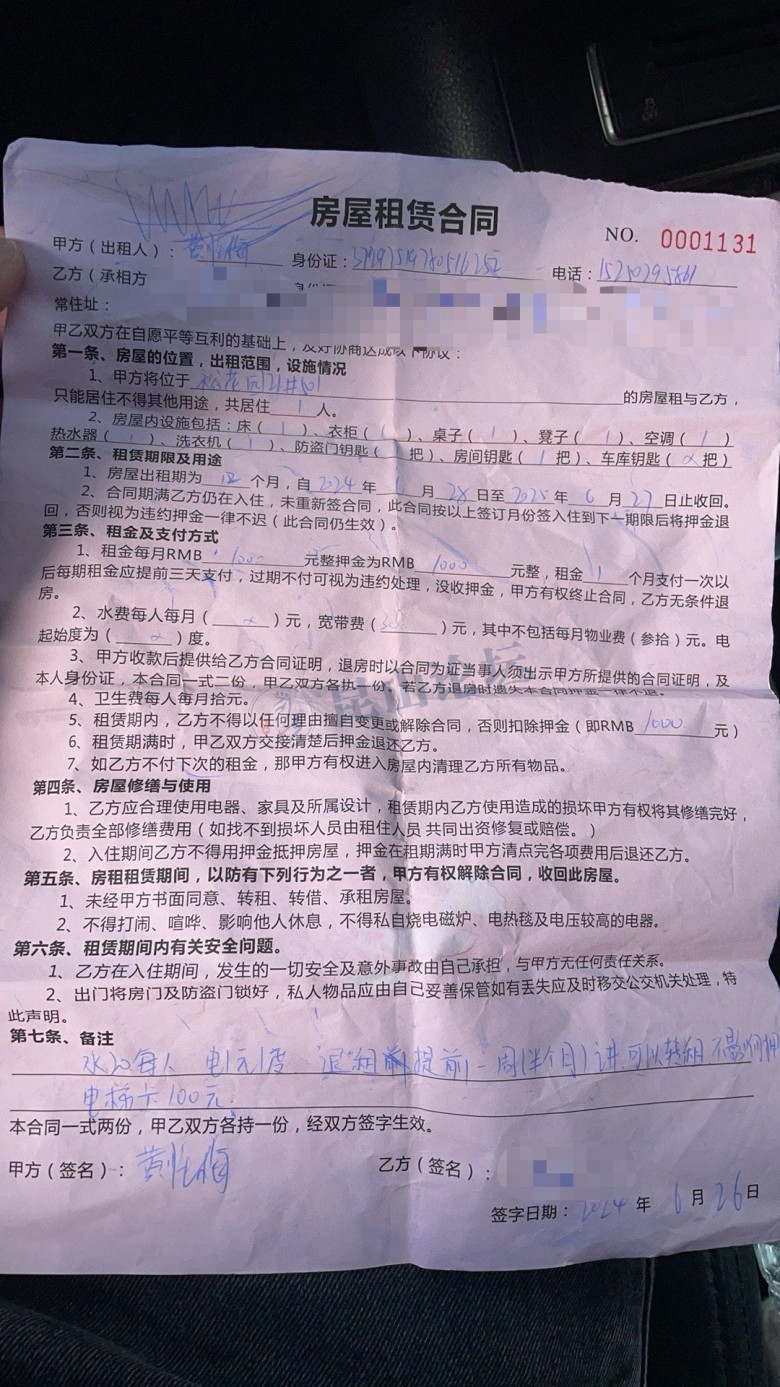 房屋租赁合同
NO. 0001131
甲方（出租人）： 身份证： 电话：
乙方（承相方
常住址：
甲乙双方在自愿平等互利的基础上，友好协商达成以下协议：
第一条、房屋的位置，出租范围，设施情况
1、甲方将位于 松花园21#501 的房屋租与乙方，
只能居住不得其他用途，共居住 1 人。
2、房屋内设施包括：床（ 1 ）、衣柜（ 1 ）、桌子（ 1 ）、凳子（ 1 ）、空调（ 1 ）
热水器（ 1 ）、洗衣机（ 1 ）、防盗门钥匙（ 1 把）、房间钥匙（ 1 把）、车库钥匙（ × 把）
第二条、租赁期限及用途
1、房屋出租期为 个月，自 2024 年 6 月 28 日至 2025 年 6 月 27 日止收回。
2、合同期满乙方仍在入住，未重新签合同，此合同按以上签订月份签入住到下一期限后将押金退
回，否则视为违约押金一律不迟（此合同仍生效）。
第三条、租金及支付方式
1、租金每月RMB 1000 元整押金为RMB 1000 元整，租金 1 个月支付一次以
后每期租金应提前三天支付，过期不付可视为违约处理，没收押金，甲方有权终止合同，乙方无条件退
房。
2、水费每人每月（ × ）元，宽带费（ ）元，其中不包括每月物业费（参拾）元。电
起始度为（ × ）度。
3、甲方收款后提供给乙方合同证明，退房时以合同为证当事人须出示甲方所提供的合同证明，及
本人身份证，本合同一式二份，甲乙双方各执一份。若乙方退房时遗失本合同押金一律不退。
4、卫生费每人每月拾元。
5、租赁期内，乙方不得以任何理由擅自变更或解除合同，否则扣除押金（即RMB 1000 元）
6、租赁期满时，甲乙双方交接清楚后押金退还乙方。
7、如乙方不付下次的租金，那甲方有权进入房屋内清理乙方所有物品。
第四条、房屋修缮与使用
1、乙方应合理使用电器、家具及所属设计，租赁期内乙方使用造成的损坏甲方有权将其修缮完好，
乙方负责全部修缮费用（如找不到损坏人员由租住人员 共同出资修复或赔偿。）
2、入住期间乙方不得用押金抵押房屋，押金在租期满时甲方清点完各项费用后退还乙方。
第五条、房租租赁期间，以防有下列行为之一者，甲方有权解除合同，收回此房屋。
1、未经甲方书面同意、转租、转借、承租房屋。
2、不得打闹、喧哗、影响他人休息，不得私自烧电磁炉、电热毯及电压较高的电器。
第六条、租赁期间内有关安全问题。
1、乙方在入住期间，发生的一切安全及意外事故由自己承担，与甲方无任何责任关系。
2、出门将房门及防盗门锁好，私人物品应由自己妥善保管如有丢失应及时移交公交机关处理，特
此声明。
第七条、备注
水20每人 电1元1度 退租前提前一周（半个月）讲 可以转租 不影响押
电梯卡100元
本合同一式两份，甲乙双方各持一份，经双方签字生效。
甲方（签名）： 乙方（签名）：
签字日期：2024 年 6 月 26 日
昆山论坛